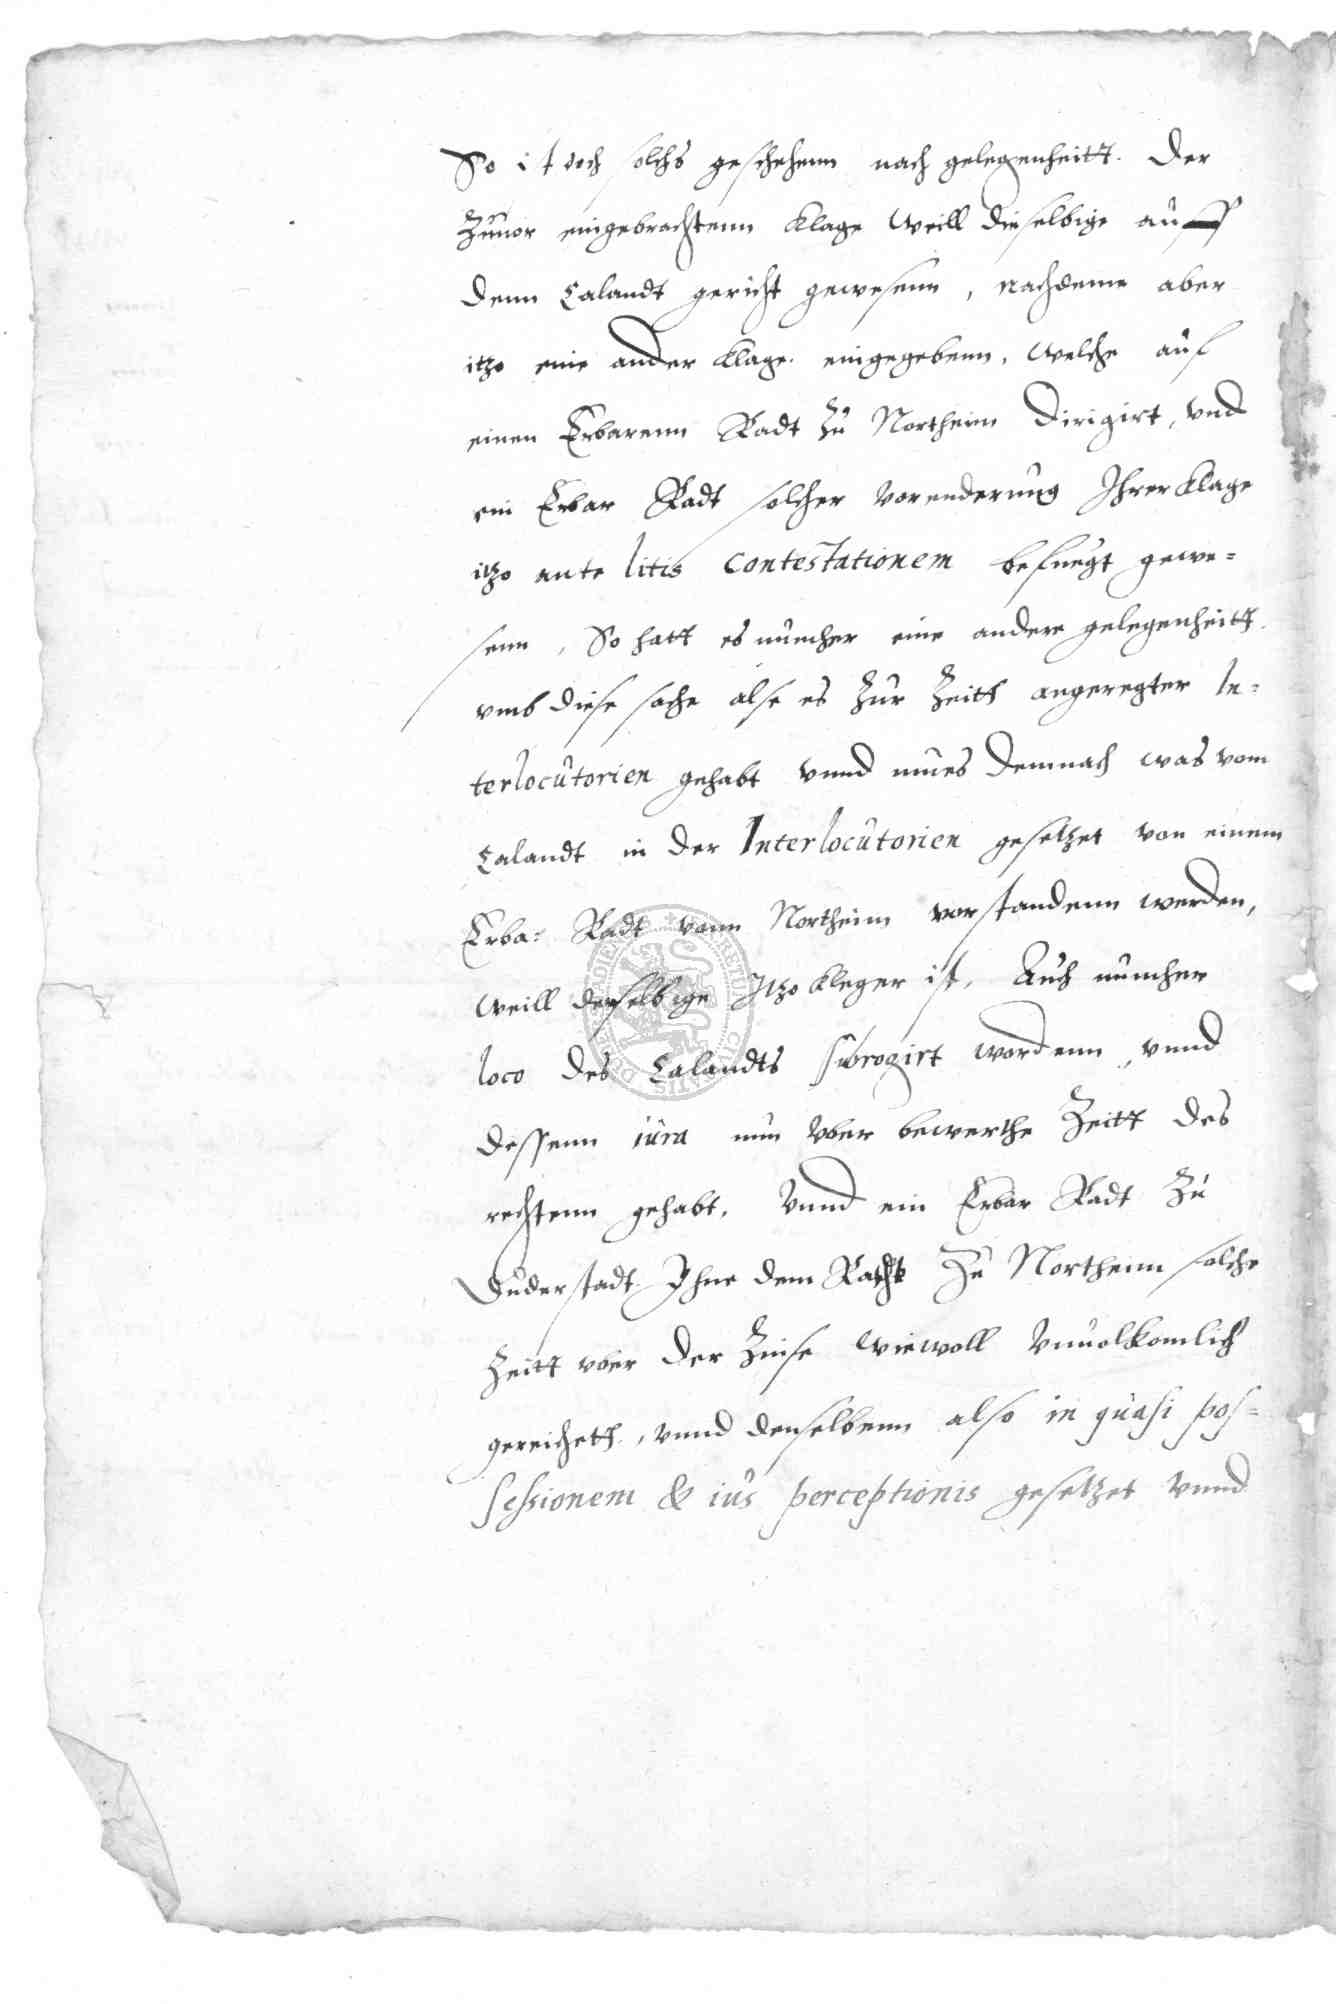 So ist doch solchs geschehenn nach gelegenheitt. der
Zuuor eingebrachtenn Klage weill dieselbige auff
denn Calandt gericht gewesenn, nachdeme aber
itzo eine ander Klage eingegebenn, welche auf
einen Erbarenn Radt zu Northeim dirigirt, vnd
ein Erbar Radt solcher vorenderung Ihrer Klage
itzo ante litis contestationem befuegt gewe=
senn, So hatt es nuncher eine andere gelegenheitt
vmb diese sache alse es zur Zeitt angeregter In=
terlocutorien gehabt vnnd mues demnach was vom
Calandt in der Interlocutorien gesetzet von einem
Erba: Radt vonn Northeim vorstandenn werden,
weill derselbige Itzo kleger ist, Auch nuncher
loco des Calandts subrogirt wordenn, vnnd
dessenn iura nun vber bewerthe Zeitt des
rechtenn gehabt, Vnnd ein Erbar Radt zu
Duderstadt Ihne dem Racht zu Northeim solche
Zeitt vber der Zinse wiewoll vnuolkomlich
gereichett, vnnd denselbenn also in quasi pos=
sessionem & ius perceptionis gesetzet vnnd